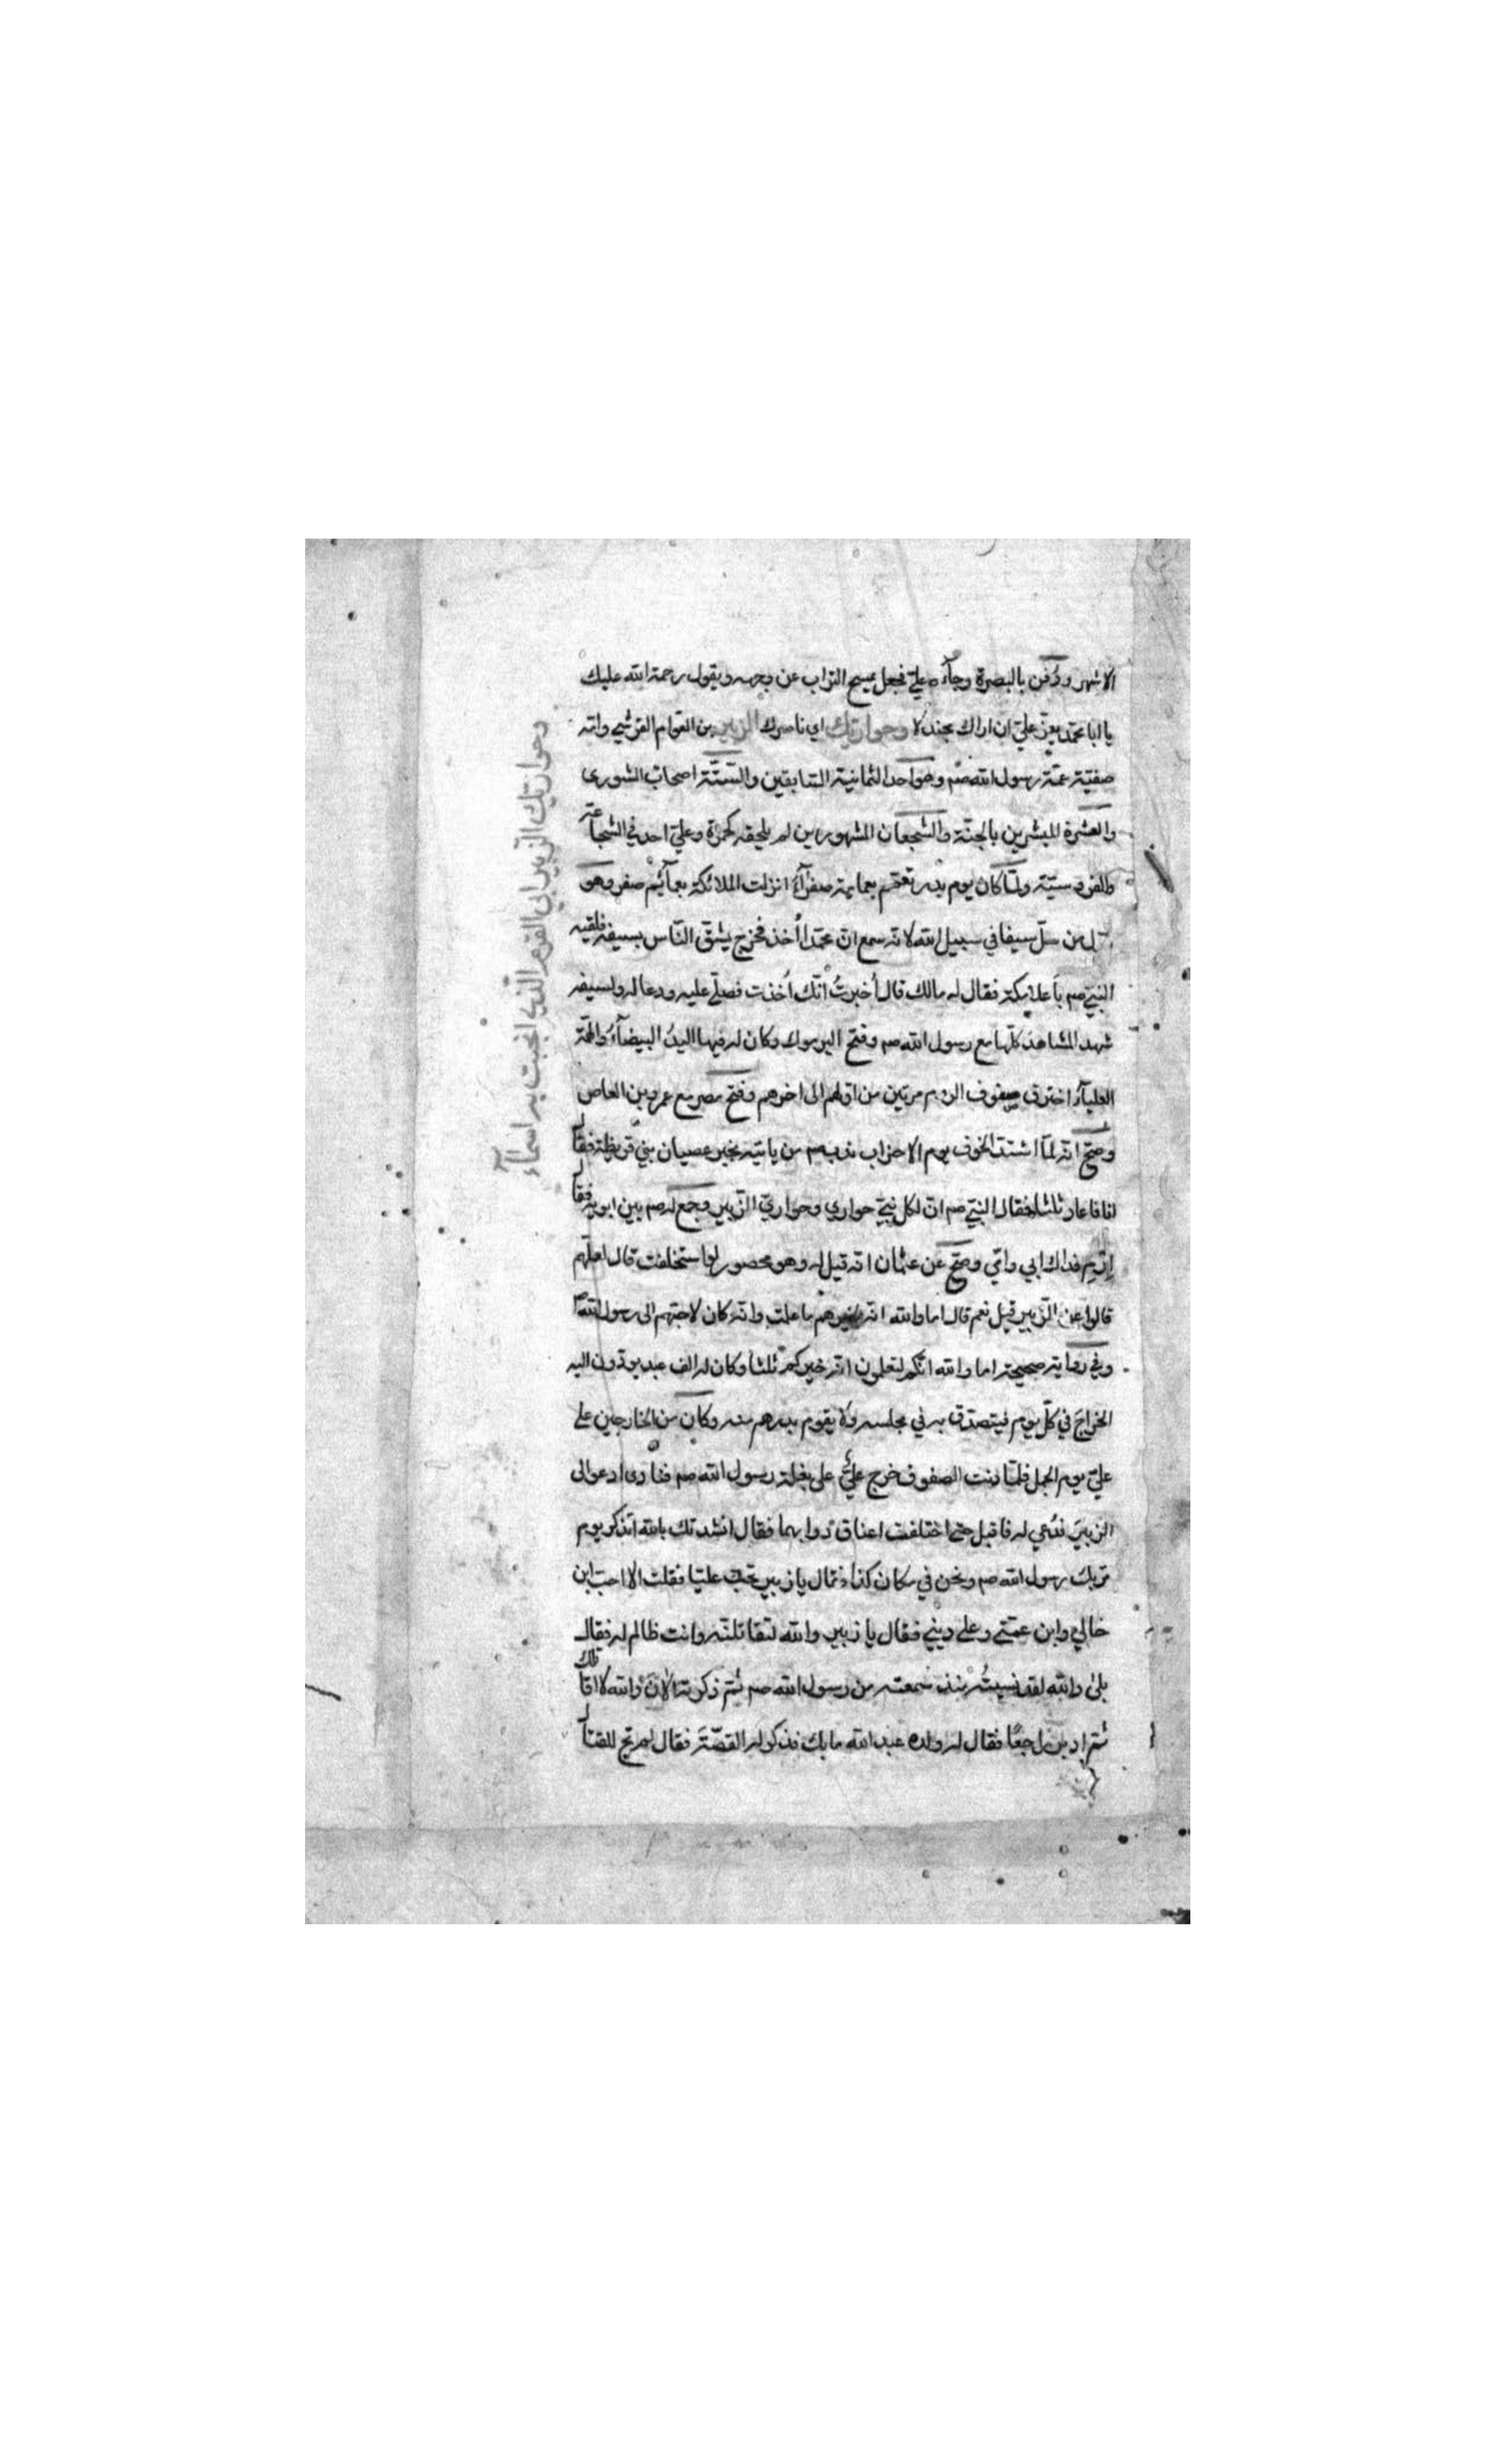 الاشهر ودُفن بالبصرة وجآءه عليّ فجعل يمسح التراب عن وجهه ويقول رحمة الله عليك
يا ابا محمد يعزّ عليّ ان اراك مجندلا وحواريك اي ناصرك الزبير بن العوّام القرشي وامّه
صفيّة عمّة رسول الله صم وهو احد الثمانية السّابقين والستّة اصحاب الشورى
والعشرة المبشرين بالجنّة والشجعان المشهورين لم يلحقه كحمزة وعليّ احد في الشجاعة
والفروسيّة ولمّا كان يوم بدر تعمّم بعمامة صفرآء انزلت الملائكة بعمآئم صفر وهو
اوّل من سلّ سيفا في سبيل الله لانه سمع انّ محمّدا اُخذ فخرج يشقّ النّاس بسيفه فلقيه
النبيّ صم باعلا مكة فقال له مالك قال اُخبرتُ انّك اُخذت فصلّى عليه ودعا له ولسيفه
شهد المشاهد كلّها مع رسول الله صم وفتح اليرموك وكان له فيها اليدُ البيضآءُ والهمّة
العليآءُ اخترق صفوف الروم مرتين من اوّلهم الى اخرهم وفتح مصر مع عمرو بن العاص
وصحّ انّه لمّا اشتدّ الخوف يوم الاحزاب ندب صم من ياتيه بخبر عصيان بني قريظة فقال
انا فاعاد ثلثا فقال النبيّ صم انّ لكل نبيّ حواري وحواريّ الزّبير وجمع له صم بين ابويه فقال
اِرْمِ فداك ابي وامّي وصحّ عن عثمان انّه قيل له وهو محصور لو استخلفت قال لعلّهم
قالوا عن الزّبير قيل نعم قال اما والله انّه لخيرهم ما علمت وانّه كان لاحبّهم الى رسول الله صم
وفي رواية صحيحة اما والله انّكم لتعلمون انّه خيركم ثلثا وكان له الف عبد يؤدّون اليه
الخراجَ في كلّ يوم فيتصدّق به في مجلسه ولا يقوم بدرهم منه وكان من الخارجين على
عليّ يوم الجمل فلمّا دنت الصفوف خرج عليّ على بغلة رسول الله صم فنادى ادعوا لى
الزبيرَ فدُعي له فاقبل حتى اختلفت اعناق دوابهما فقال انشدتك بالله اتذكر يوم
مرّ بك رسول الله صم ونحن في مكان كذا فقال يا زبير تحبّ عليّا فقلت الا احبّ ابن
خالي وابن عمّتي وعلى ديني فقال يا زبير والله لتقاتلنّه وانت ظالم له فقال
بلى والله لقد نسيتُه منذ سمعته من رسول الله صم ثم ذكرته الآنَ والله لا اقاتلك
ثم ادبر راجعًا فقال له ولده عبد الله ما بك فذكر له القصّةَ فقال لم تجئ للقتال
وحواريك الزبير ابي القرم الذي انجبت به اسمآء